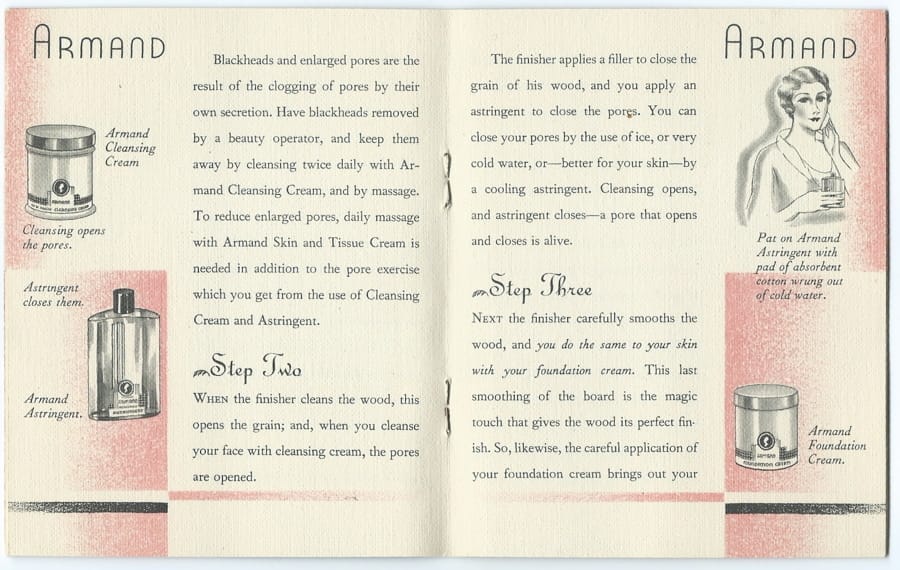 ARMAND
Armand
Cleansing
Cream
Cleansing opens
the pores.
Astringent
closes them.
Armand
Astringent.
Blackheads and enlarged pores are the
result of the clogging of pores by their
own secretion. Have blackheads removed
by a beauty operator, and keep them
away by cleansing twice daily with Ar-
mand Cleansing Cream, and by massage.
To reduce enlarged pores, daily massage
with Armand Skin and Tissue Cream is
needed in addition to the pore exercise
which you get from the use of Cleansing
Cream and Astringent.
Step Two
WHEN the finisher cleans the wood, this
opens the grain; and, when you cleanse
your face with cleansing cream, the pores
are opened.
The finisher applies a filler to close the
grain of his wood, and you apply an
astringent to close the pores. You can
close your pores by the use of ice, or very
cold water, or—better for your skin—by
a cooling astringent. Cleansing opens,
and astringent closes—a pore that opens
and closes is alive.
Step Three
NEXT the finisher carefully smooths the
wood, and you do the same to your skin
with your foundation cream. This last
smoothing of the board is the magic
touch that gives the wood its perfect fin-
ish. So, likewise, the careful application of
your foundation cream brings out your
ARMAND
Pat on Armand
Astringent with
pad of absorbent
cotton wrung out
of cold water.
ARMAND
FOUNDATION CREAM
Armand
Foundation
Cream.